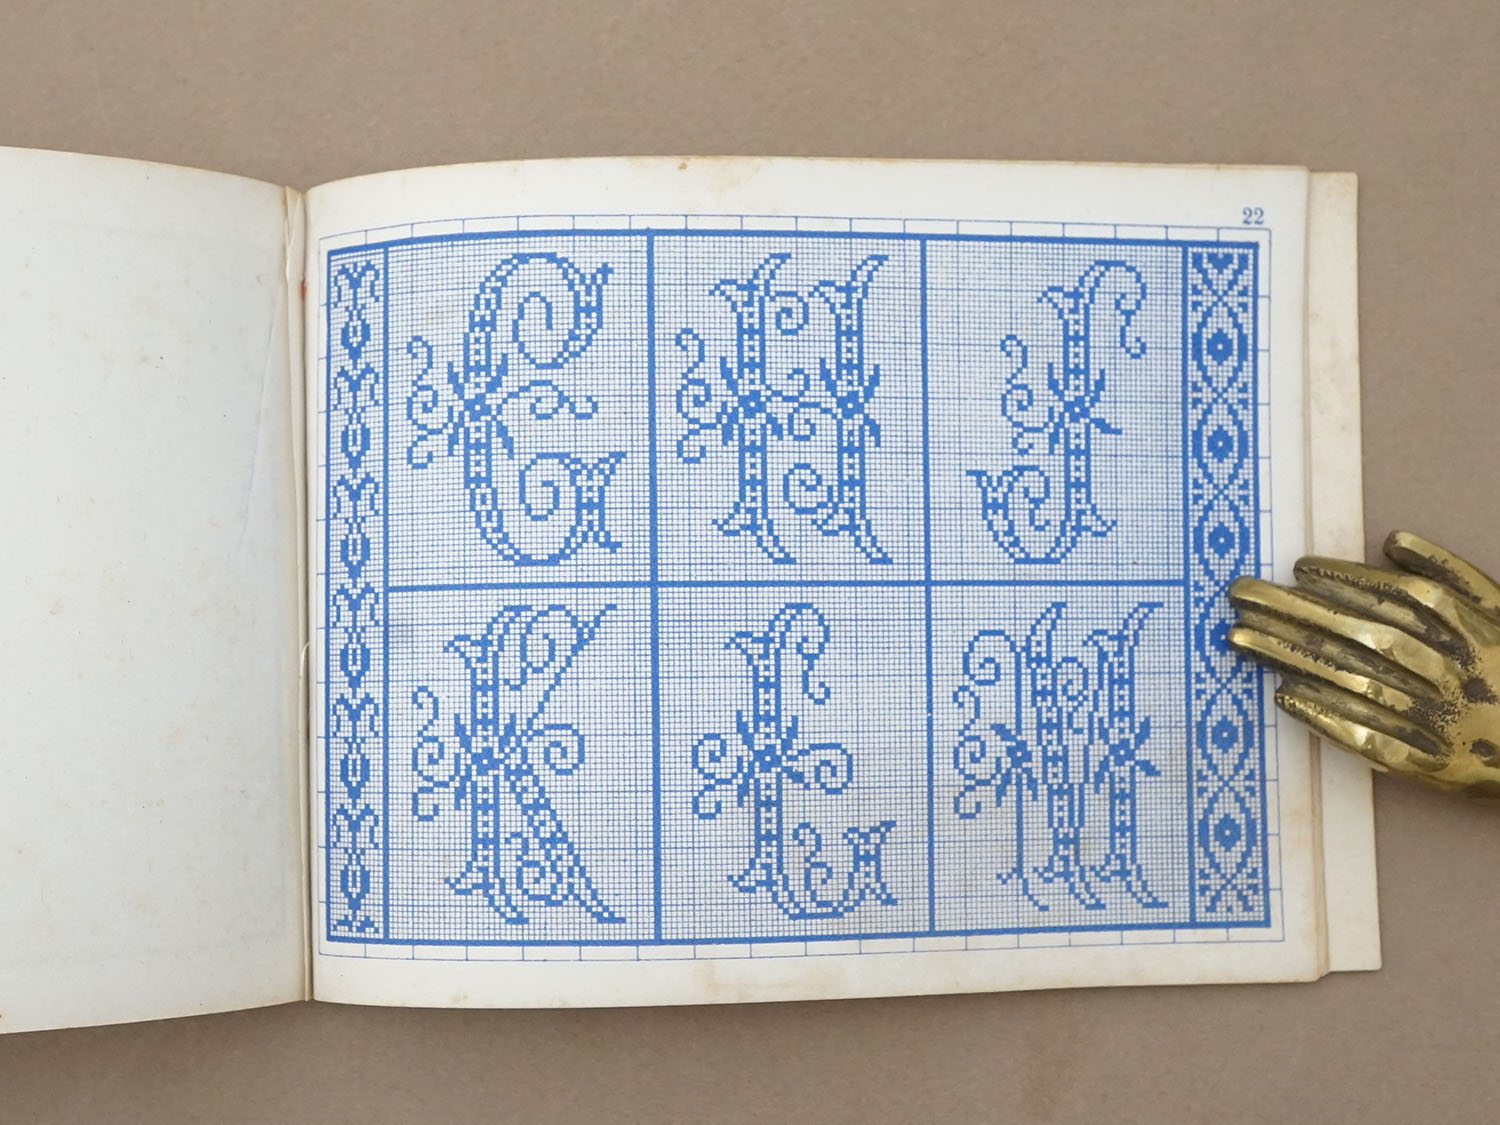 22
G H J
K L M